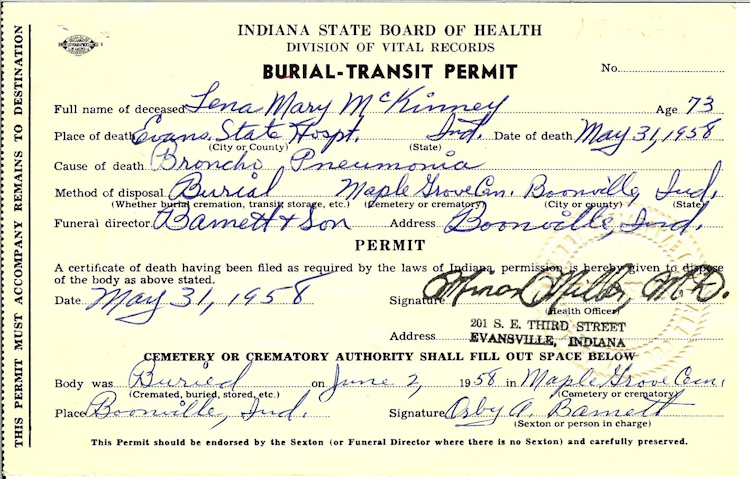 INDIANA STATE BOARD OF HEALTH
DIVISION OF VITAL RECORDS
BURIAL-TRANSIT PERMIT
No.
Full name of deceased Lena Mary McKinney Age 73
Place of death Evans. State Hospt. Ind. Date of death May 31, 1958
(City or County) (State)
Cause of death Broncho Pneumonia
Method of disposal Burial Maple Grove Cem. Boonville, Ind.
(Whether burial cremation, transit, storage, etc.) (Cemetery or crematory) (City or county) (State)
Funeral director Barnett & Son Address Boonville, Ind.
PERMIT
A certificate of death having been filed as required by the laws of Indiana, permission is hereby given to dispose
of the body as above stated.
Date May 31, 1958 Signature Minor Miller, M.D.
(Health Officer)
Address 201 S. E. THIRD STREET
EVANSVILLE, INDIANA
CEMETERY OR CREMATORY AUTHORITY SHALL FILL OUT SPACE BELOW
Body was Buried on June 2, 1958 in Maple Grove Cem.
(Cremated, buried, stored, etc.) (Cemetery or crematory)
Place Boonville, Ind. Signature Orby A. Barnett
(Sexton or person in charge)
This Permit should be endorsed by the Sexton (or Funeral Director where there is no Sexton) and carefully preserved.
THIS PERMIT MUST ACCOMPANY REMAINS TO DESTINATION